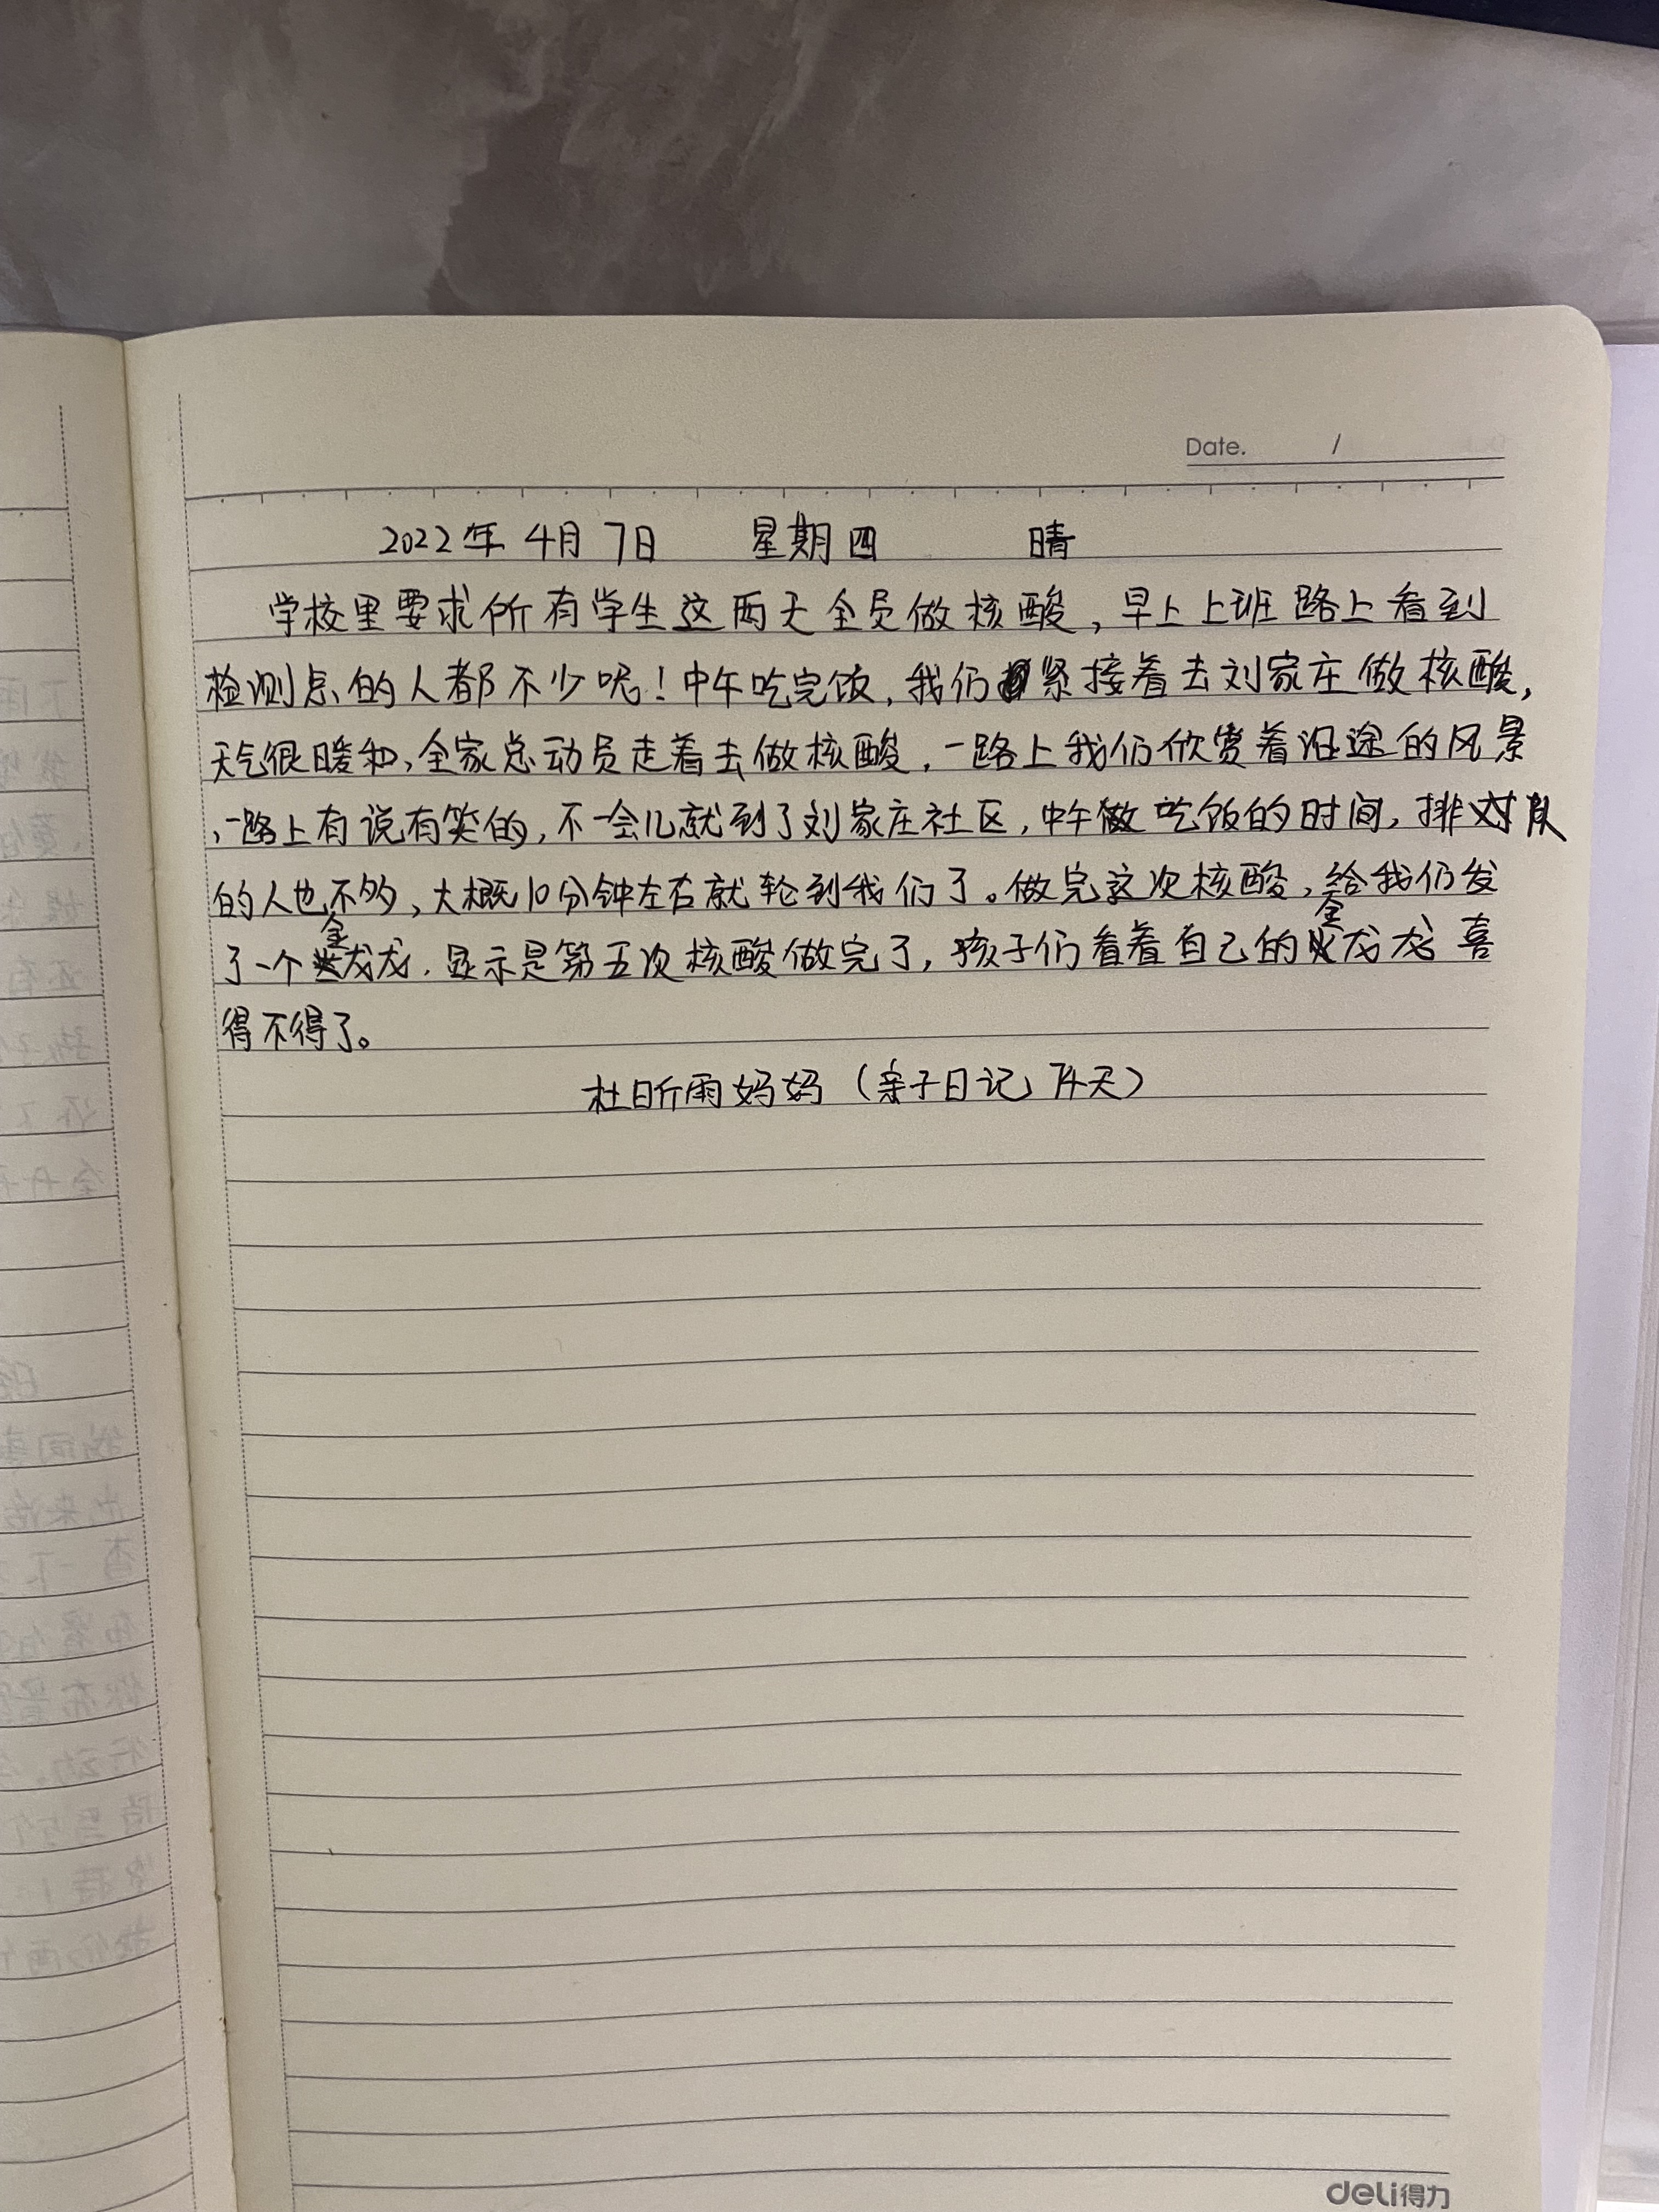 Date. /
2022年 4月 7日 星期四 晴
学校里要求所有学生这两天全员做核酸,早上上班路上看到
检测点的人都不少呢!中午吃完饭,我们紧接着去刘家庄做核酸,
天气很暖和,全家总动员走着去做核酸,一路上我们欣赏着沿途的风景
,一路上有说有笑的,不一会儿就到了刘家庄社区,中午做吃饭的时间,排队
的人也不多,大概10分钟左右就轮到我们了。做完这次核酸,给我们发
了一个金龙龙,显示是第五次核酸做完了,孩子们看着自己的金龙龙 喜
得不得了。
杜昕雨妈妈(亲子日记 74天)
deli得力